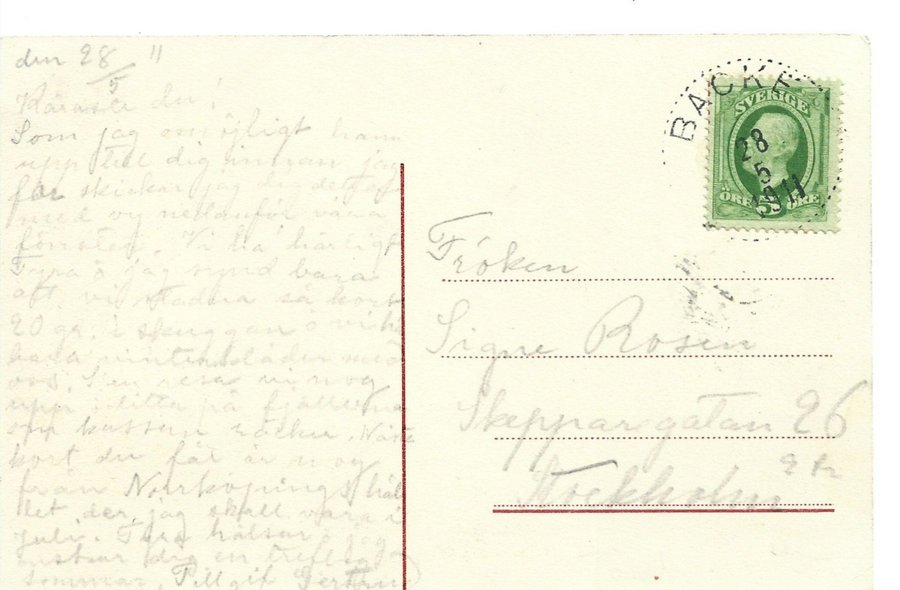 den 28/5 11
Käraste du!
Som jag omöjligt kan
upp till dig innan jag
får skickar jag dig det
med vy nedanför våra
fönster. Vi ha härligt
Tyra å jag synd bara
att vi stadna så kort
20 gr. i skuggan å vi ha
bara vinterkläder med
oss. Sen resa vi nog
upp titta på fjällena
om kassan räcker. Nästa
kort du får är nog
från Norrköpings
det der jag skall vara i
juli. Tyra hälsar å jag
önskar dig en treflig
sommar. Tillgif. Gertrud
BACKE
SVERIGE
28
5
1911
5
ÖRE ÖRE
Fröken
Signe Rosen
Skeppargatan 26
Stockholm